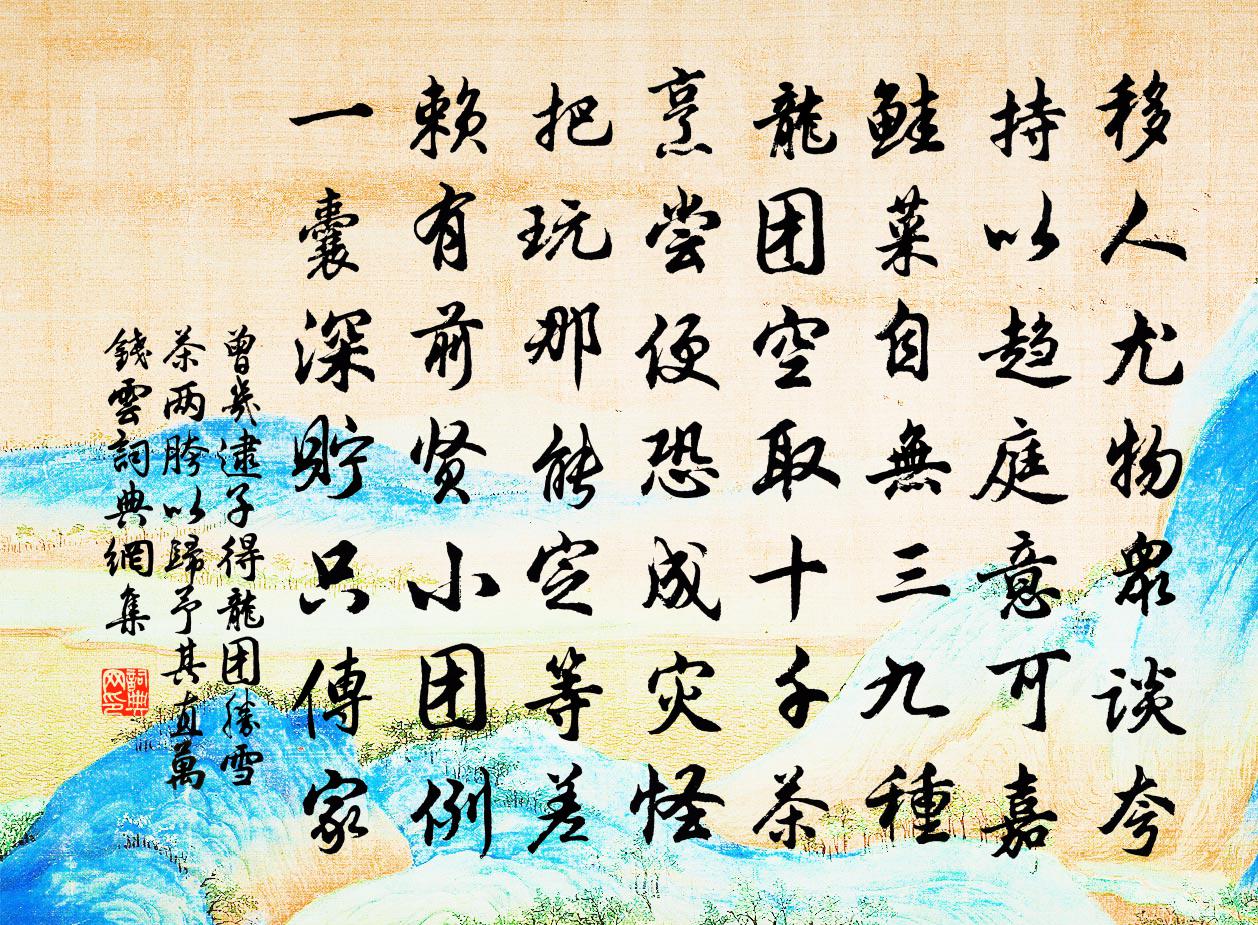 移人尤物眾谈夸
持以趋庭意可嘉
鲑菜自無三九種
龍团空取十千茶
烹尝便恐成灾怪
把玩那能定等差
赖有前贤小团例
一囊深貯只傳家
曾幾逮子得龍团勝雪
茶两胯以歸予其直萬
錢雲詞典網集
詞典网印